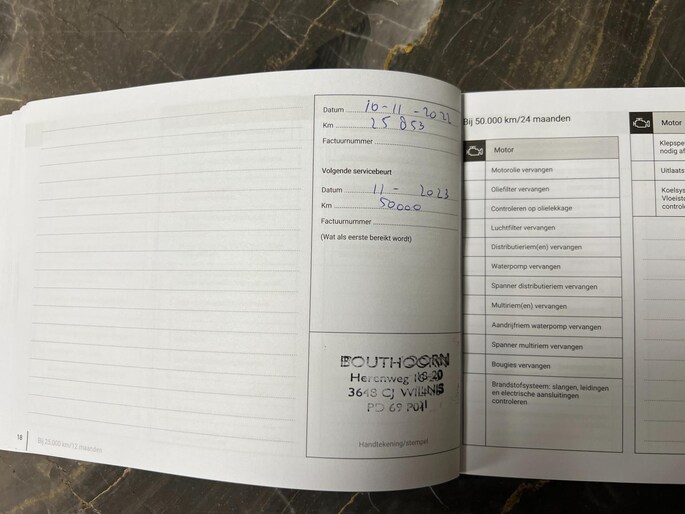 Datum 10-11-2022
Km 25 853
Factuurnummer
Volgende servicebeurt
Datum 11 - 2023
Km 50000
Factuurnummer
(Wat als eerste bereikt wordt)
BOUTHOORN
Herenweg 18-20
3648 CJ WILNIS
Handtekening/stempel
18 Bij 25.000 km/12 maanden
Bij 50.000 km/24 maanden
Motor
Motorolie vervangen
Oliefilter vervangen
Controleren op olielekkage
Luchtfilter vervangen
Distributieriem(en) vervangen
Waterpomp vervangen
Spanner distributieriem vervangen
Multiriem(en) vervangen
Aandrijfriem waterpomp vervangen
Spanner multiriem vervangen
Bougies vervangen
Brandstofsysteem: slangen, leidingen
en electrische aansluitingen
controleren.
Motor
Klepspe
nodig af
Uitlaats
Koelsys
Vloeist
control